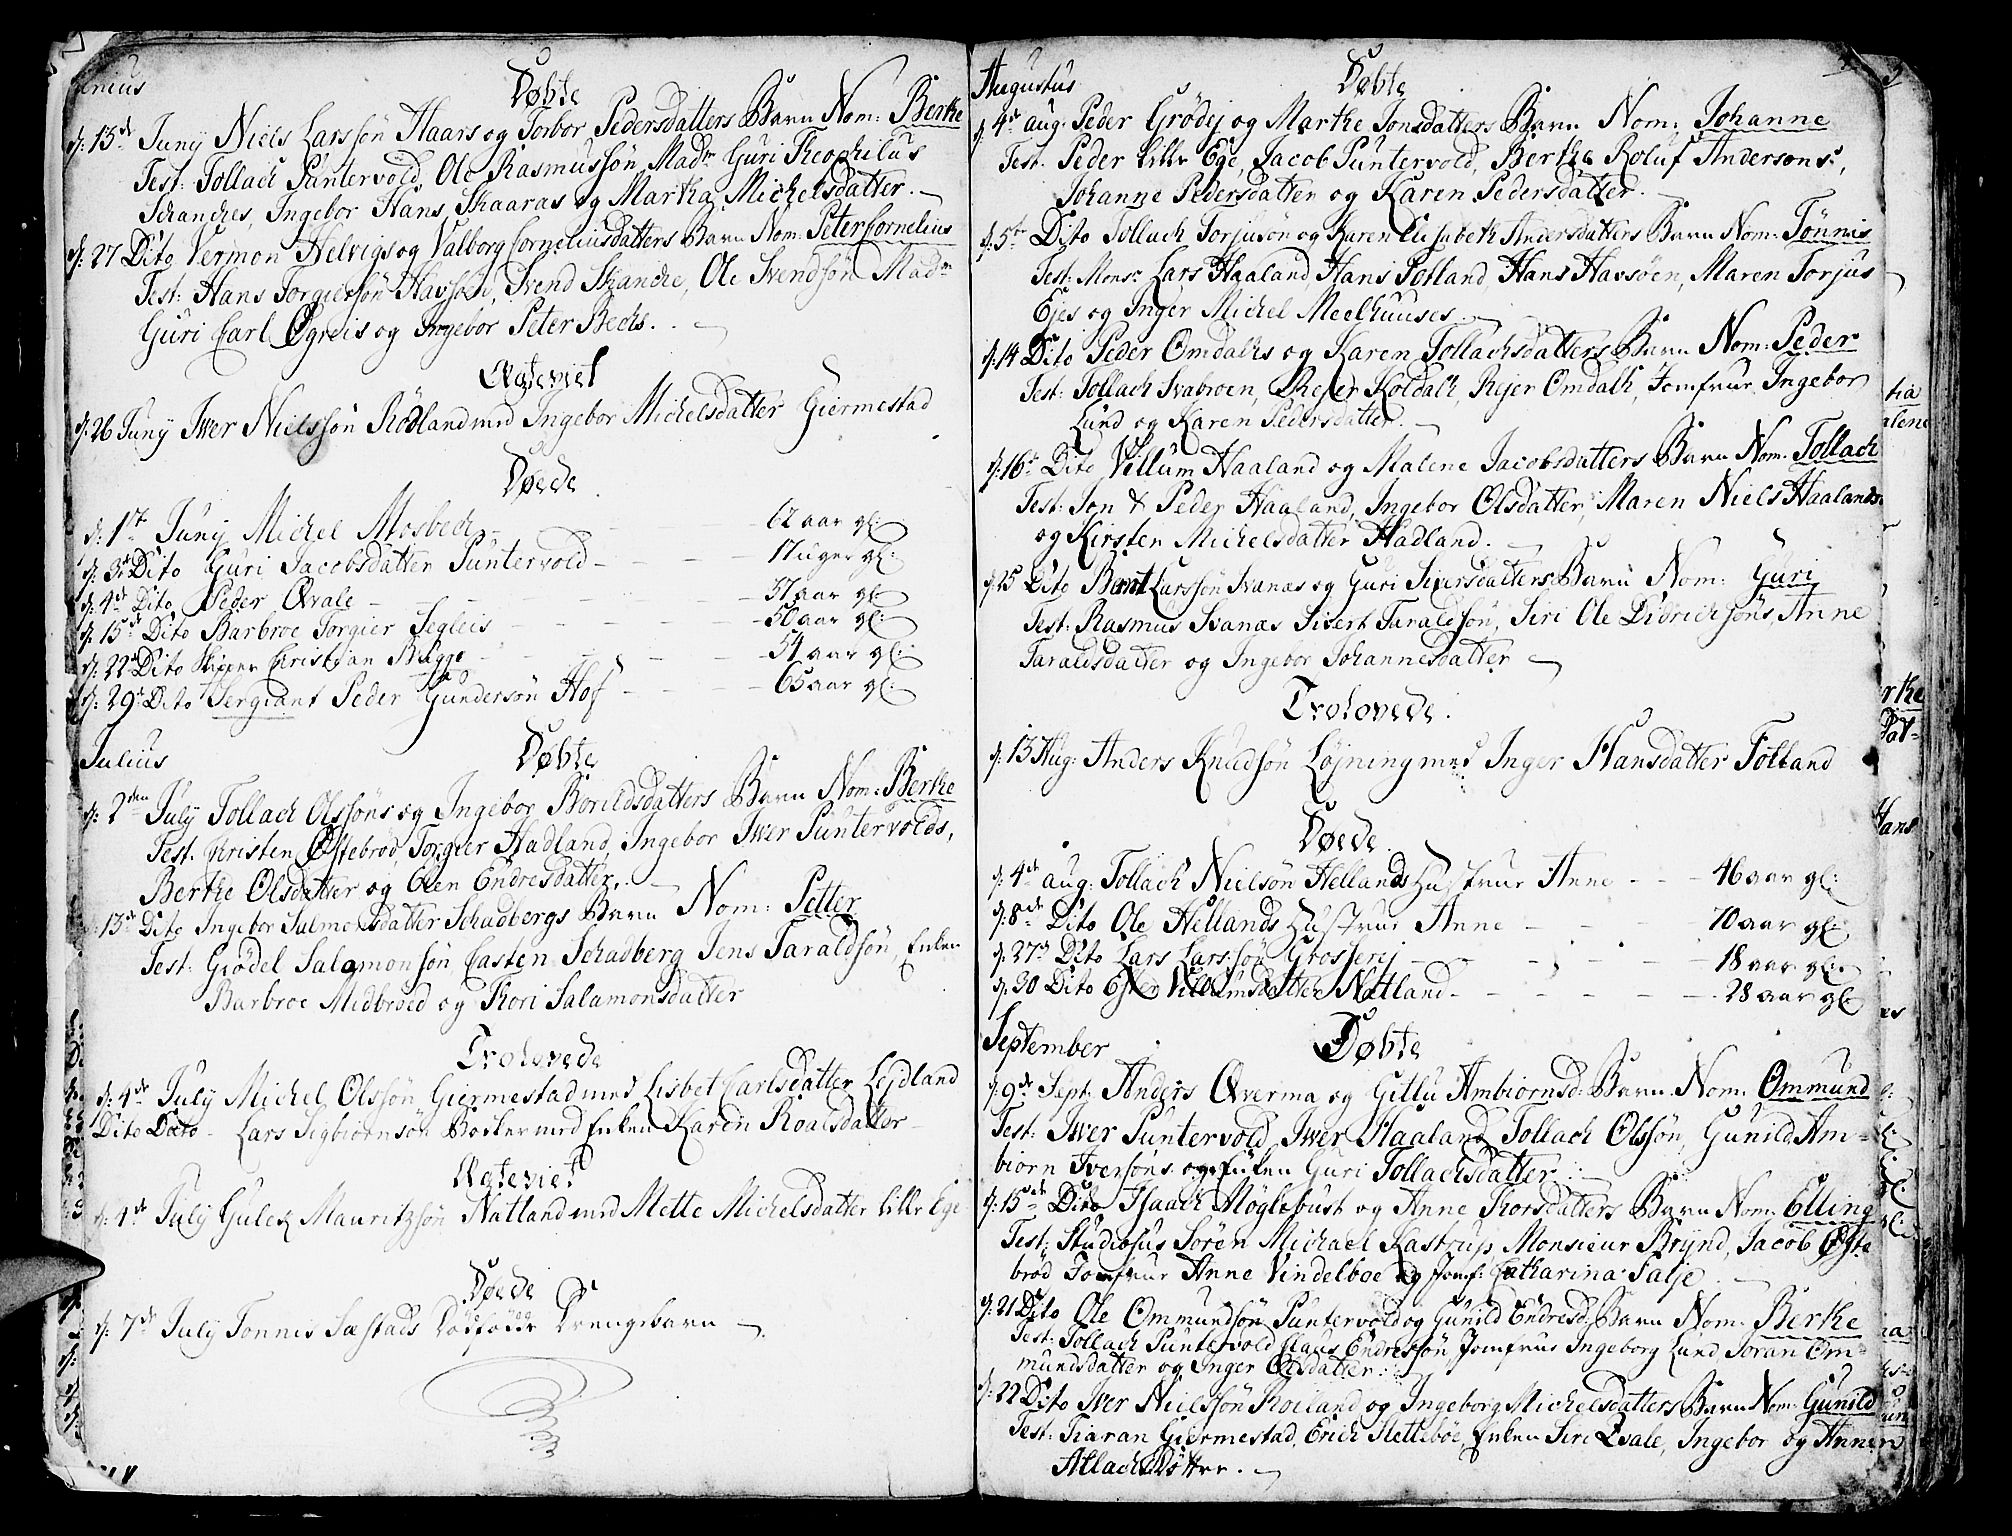 Junius
Døbte
d: 13de Juny Niels Larssøn Haars og Torbor Pedersdatters Barn Nom: Berthe
Test: Tollach Puntervold, Ole Rasmussøn Madm Guri Theophilus
Schanches, Ingebor Hans Skaaras og Martha Michelsdatter.
d: 27 Dito Vermon Helvigs og Valborg Corneliusdatters Barn Nom: Peter Cornelius
Test: Hans Torgiersøn Havsøen, Svend Skanche, Ole Svendsøn Madm
Guri Carl Øgreis og Ingebor Peter Bechs.
Ægteviet
d: 26 Juny Iver Nielssøn Rödland med Ingebor Michelsdatter Giermestad
Døede
d: 1ste Juny Michel Mosbech - 62 aar gl:
d: 3de Dito Guri Jacobsdatter Puntervold - 17 uger gl:
d: 4de Dito Peder Qvale - 37 aar gl:
d: 15de Dito Barbroe Torgier Segleis - 50 aar gl:
d: 22de Dito Skipper Christian Bugge - 54 aar gl:
d: 29de Dito Sergiant Peder Gundersøn Hof - 65 aar gl:
Julius
Døbte
d: 2den July Tollach Olssøns og Ingebor Borildsdatters Barn Nom: Berthe
Test. Kristen Østebrød, Torgier Hadland, Ingebor Iver Puntervolds,
Berthe Olsdatter og Elen Endresdatter.
d: 13de Dito Ingebor Salmonsdatter Schadbergs Barn Nom: Petter
Test: Giødel Salomonsøn, Casten Schadberg Jens Taraldsøn, Enken
Barbroe Midbrøed og Thori Salamonsdatter
Trolovede
d: 4de July Michel Olssøn Giermestad med Lisbet Carlsdatter Lejdland
Dito Dato - Lars Sigbiørnsøn Bøcker med Enken Karen Roalsdatter
Ægteviet
d: 4de July Gulek Mauritzsøn Natland med Mette Michelsdatter lille Ege
Døede
d: 7de July Tonnis Sæstads Dødfødde Drengebarn
Augustus
Døbte
d: 4de aug: Peder Grödej og Marthe Jonsdatters Barn Nom: Johanne
Test: Peder lille Ege, Jacob Puntervold, Berthe Roluf Andersons,
Johanne Pedersdatter og Karen Pedersdatter.
d: 5te Dito Tollach Torjusøn og Karen Elisabeth Andersdatters Barn Nom: Tönnis
Test: Monsr Lars Haaland, Hans Totland, Hans Havsøen, Maren Torjus
Ejes og Inger Michel Meelhuuses.
d: 14 Dito Peder Omdahls og Karen Tollachsdatters Barn Nom: Peder
Test: Tollach Svabroen, Rejer Koldall, Rejer Omdall, Jomfrue Ingebor
Lund og Karen Pedersdatter.
d: 16de Dito Vellum Haaland og Malene Jacobsdatters Barn Nom. Tollach
Test: Jon & Peder Haaland, Ingebor Olsdatter, Maren Niels Haalands
og Kirsten Michelsdatter Hadland.
d: 25 Dito Bernt Larssøn Svanæs og Guri Siversdatters Barn Nom: Guri
Test: Rasmus Svanæs Sivert Taraldsøn, Siri Ole Didrichsøns, Anne
Taraldsdatter og Ingebor Johannesdatter
Trolovede.
d: 13 Aug: Anders Knudsøn Løjning med Inger Hansdatter Totland
Døede.
d: 4de aug: Tollach Nielsøn Hellands Hustrue Anne - 46 aar gl:
d: 8de Dito Ole Hellands Hustrue Anne - 70 aar gl:
d: 27de Dito Lars Larssøn Grosserej - 18 aar gl:
d: 30 Dito Ester Villumsdatter Natland - 28 aar gl:
September
Døbte
d: 9de Sept: Anders Qverma og Gitlu Ambiørnsd: Barn Nom: Ommund
Test: Iwer Puntervold, Iwer Haaland, Tollach Olssøn, Gunild Am-
biørn Iversøns og Enken Guri Tollachsdatter
d: 15de Dito Isaach Møglebust og Anne Thorsdatters Barn Nom: Elling
Test: Studiosus Sören Michael Kastrup, Monsieur Brynd, Jacob Øste
bröd Jomfrue Anne Vindelboe og Jomf: Catharina Salje.
d: 21 Dito Ole Ommundsøn Puntervold og Gunild Endresd: Barn Nom: Berthe
Test: Tollach Puntervold Claus Endresøn, Jomfrue Ingeborg Lund Soran Om-
mundsdatter og Inger Olsdatter.
d: 22 Dito Iver Nielssøn Roiland og Ingeborg Michelsdatters Barn Nom: Gunild
Test: Tiaran Giermestad, Erich Stettebøe, Enken Siri Qvale, Ingebor og Anne
Atlachsdøttre.